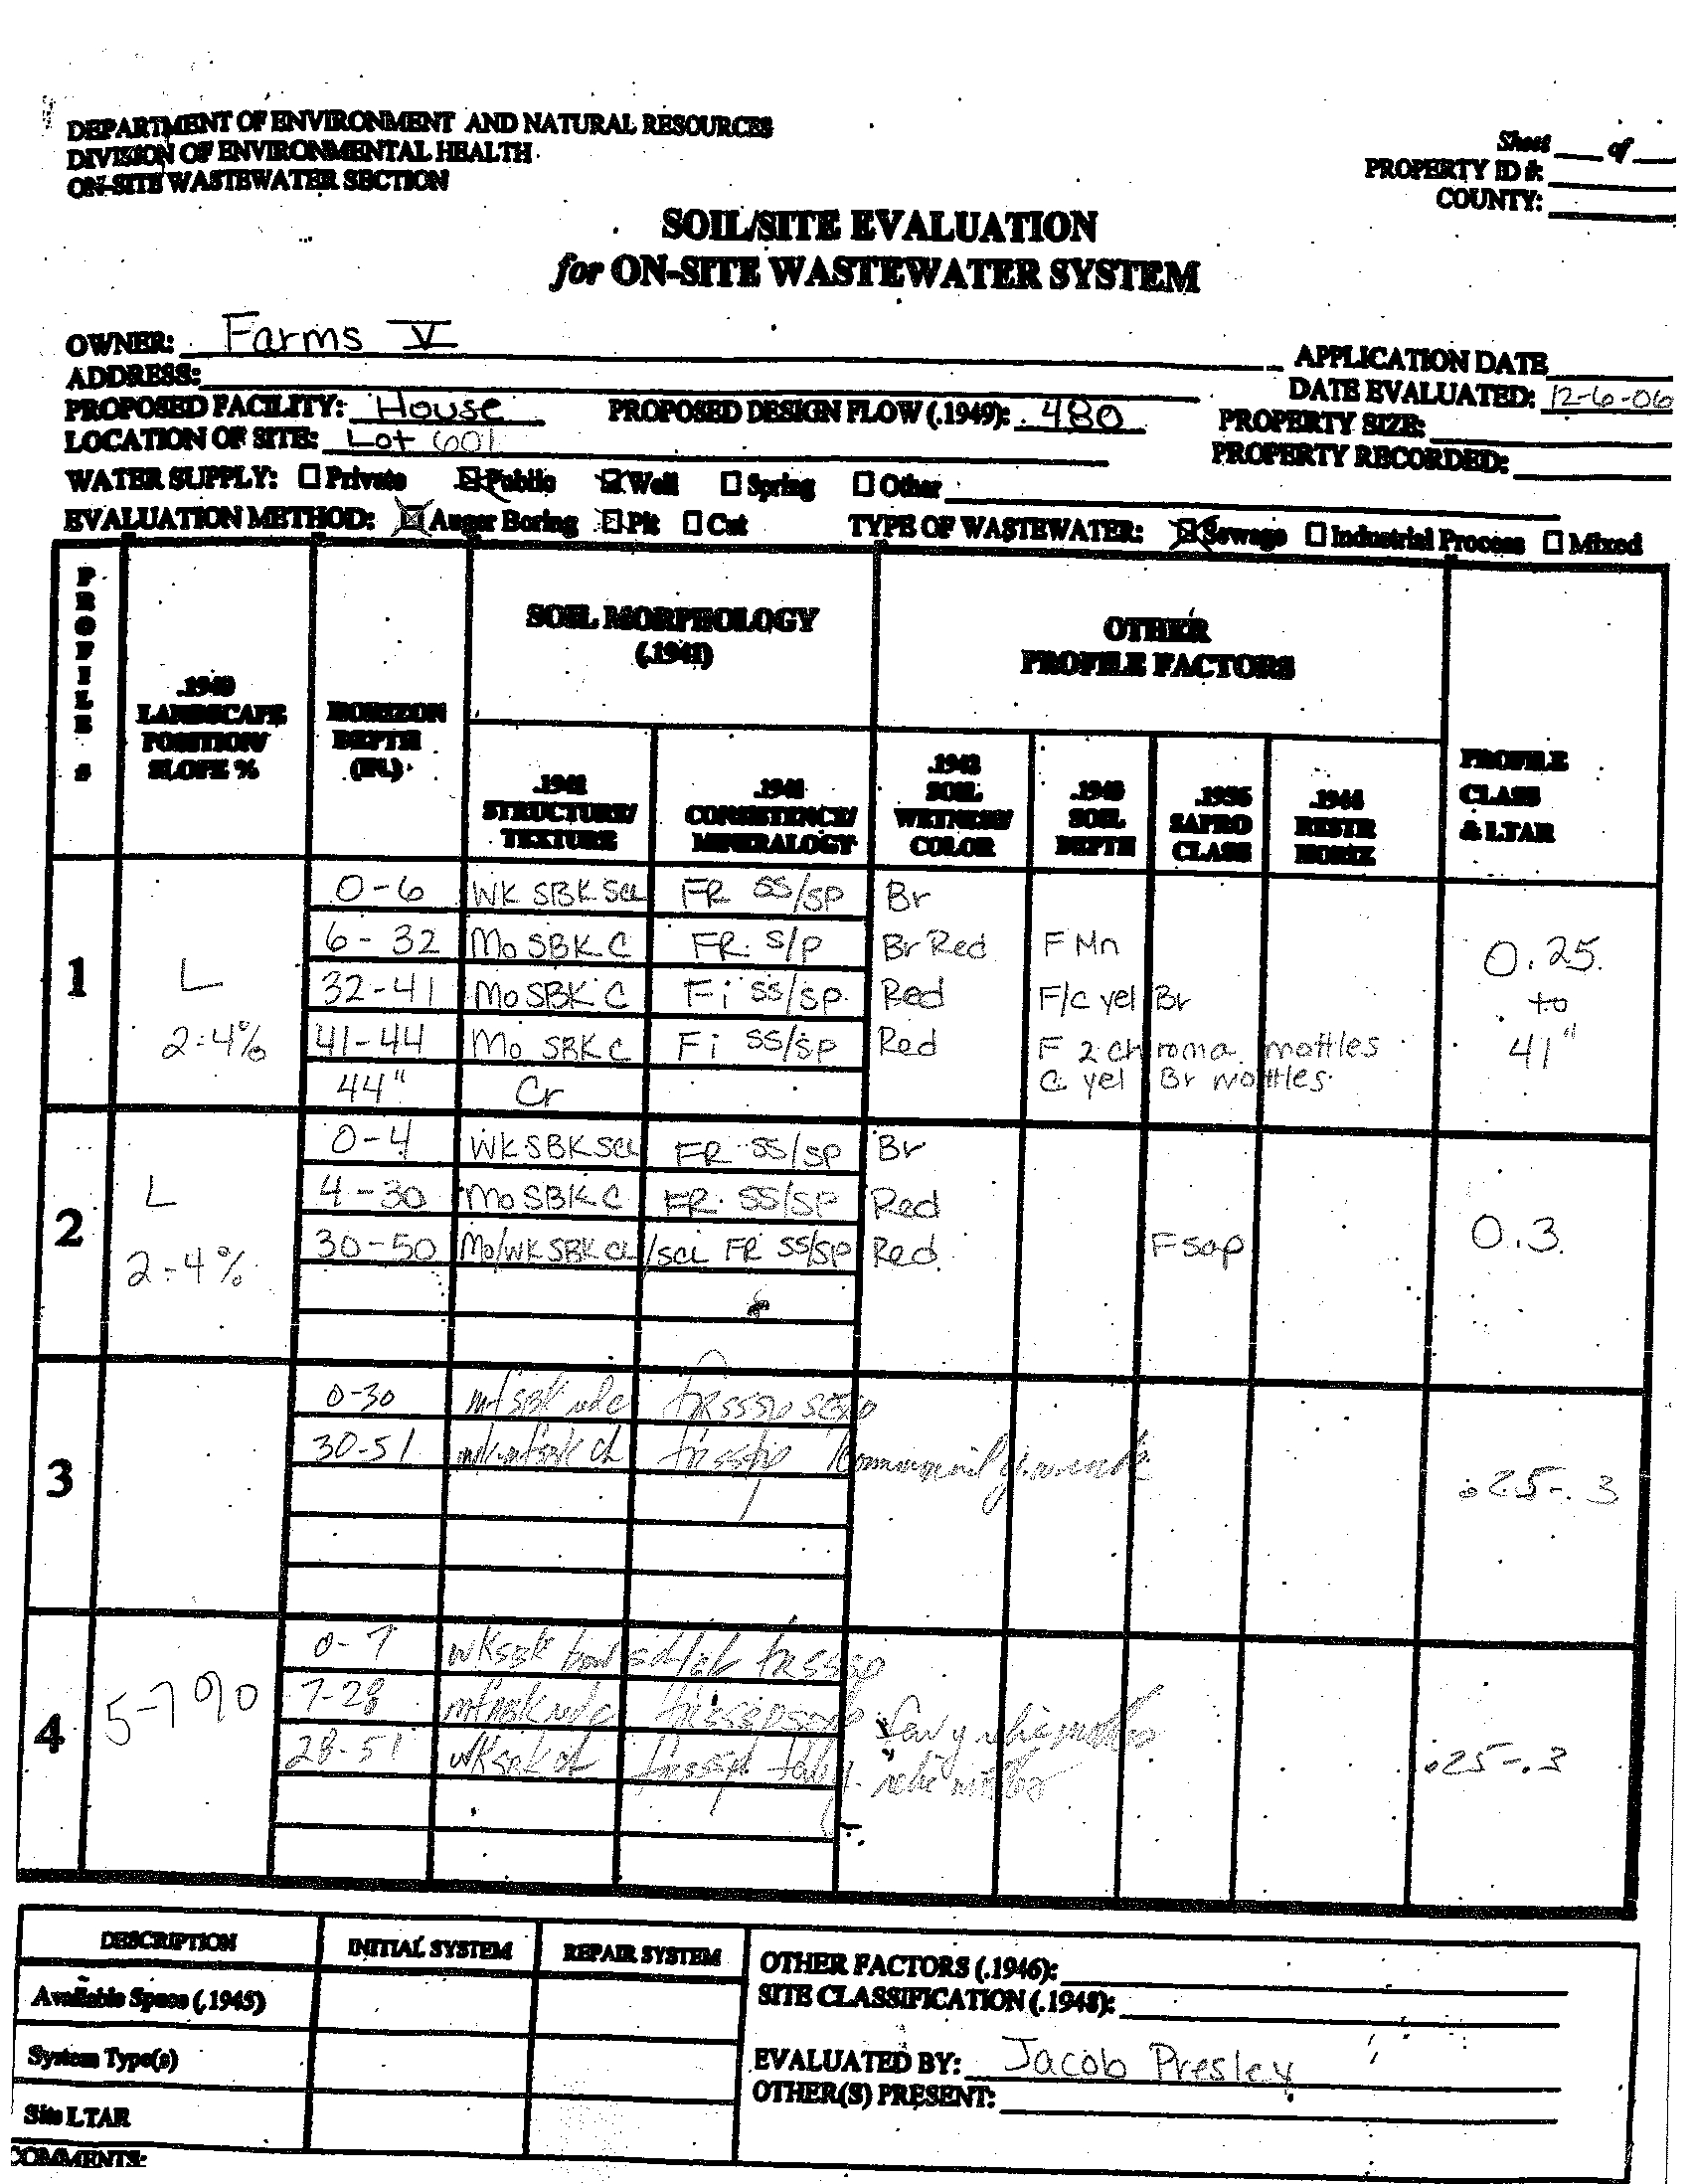 DEPARTMENT OF ENVIRONMENT AND NATURAL RESOURCES
DIVISION OF ENVIRONMENTAL HEALTH
ON-SITE WASTEWATER SECTION
Sheet ___ of ___
PROPERTY ID #:
COUNTY:
SOIL/SITE EVALUATION
for ON-SITE WASTEWATER SYSTEM
OWNER: Farms V
APPLICATION DATE
ADDRESS:
DATE EVALUATED: 12-6-06
PROPOSED FACILITY: House PROPOSED DESIGN FLOW (.1949): 480 PROPERTY SIZE:
LOCATION OF SITE: Lot 601 PROPERTY RECORDED:
WATER SUPPLY: Private Public Well Spring Other
EVALUATION METHOD: Auger Boring Pit Cut TYPE OF WASTEWATER: Sewage Industrial Process Mixed
PROFILE #
.1940 LANDSCAPE POSITION/ SLOPE %
HORIZON DEPTH (IN.)
SOIL MORPHOLOGY (.1941)
OTHER PROFILE FACTORS
.1941 STRUCTURE/ TEXTURE
.1941 CONSISTENCE/ MINERALOGY
.1942 SOIL WETNESS/ COLOR
.1943 SOIL DEPTH
.1956 SAPRO CLASS
.1944 RESTR HORIZ
PROFILE CLASS & LTAR
1 L 2-4% 0.25 to 41"
0-6 WK SBK SCL FR SS/SP Br
6-32 Mo SBK C FR S/P Br Red F Mn
32-41 Mo SBK C Fi SS/SP Red F/c yel Br
41-44 Mo SBK C Fi SS/SP Red F 2 chroma mottles
C yel Br mottles
44" Cr
2 L 2-4% 0.3
0-4 WK SBK SCL FR SS/SP Br
4-30 Mo SBK C FR SS/SP Red
30-50 Mo/WK SBK CL/SCL FR SS/SP Red F sap
3 .25-.3
0-30
30-51
4 5-7% .25-.3
0-7 wksbk
7-28
28-51 wksbk cl
DESCRIPTION INITIAL SYSTEM REPAIR SYSTEM
Available Space (.1945)
System Type(s)
Site LTAR
OTHER FACTORS (.1946):
SITE CLASSIFICATION (.1948):
EVALUATED BY: Jacob Presley
OTHER(S) PRESENT:
COMMENTS: